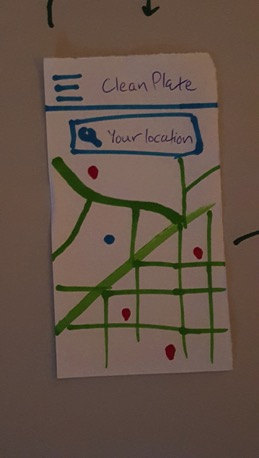 Clean Plate
Your location